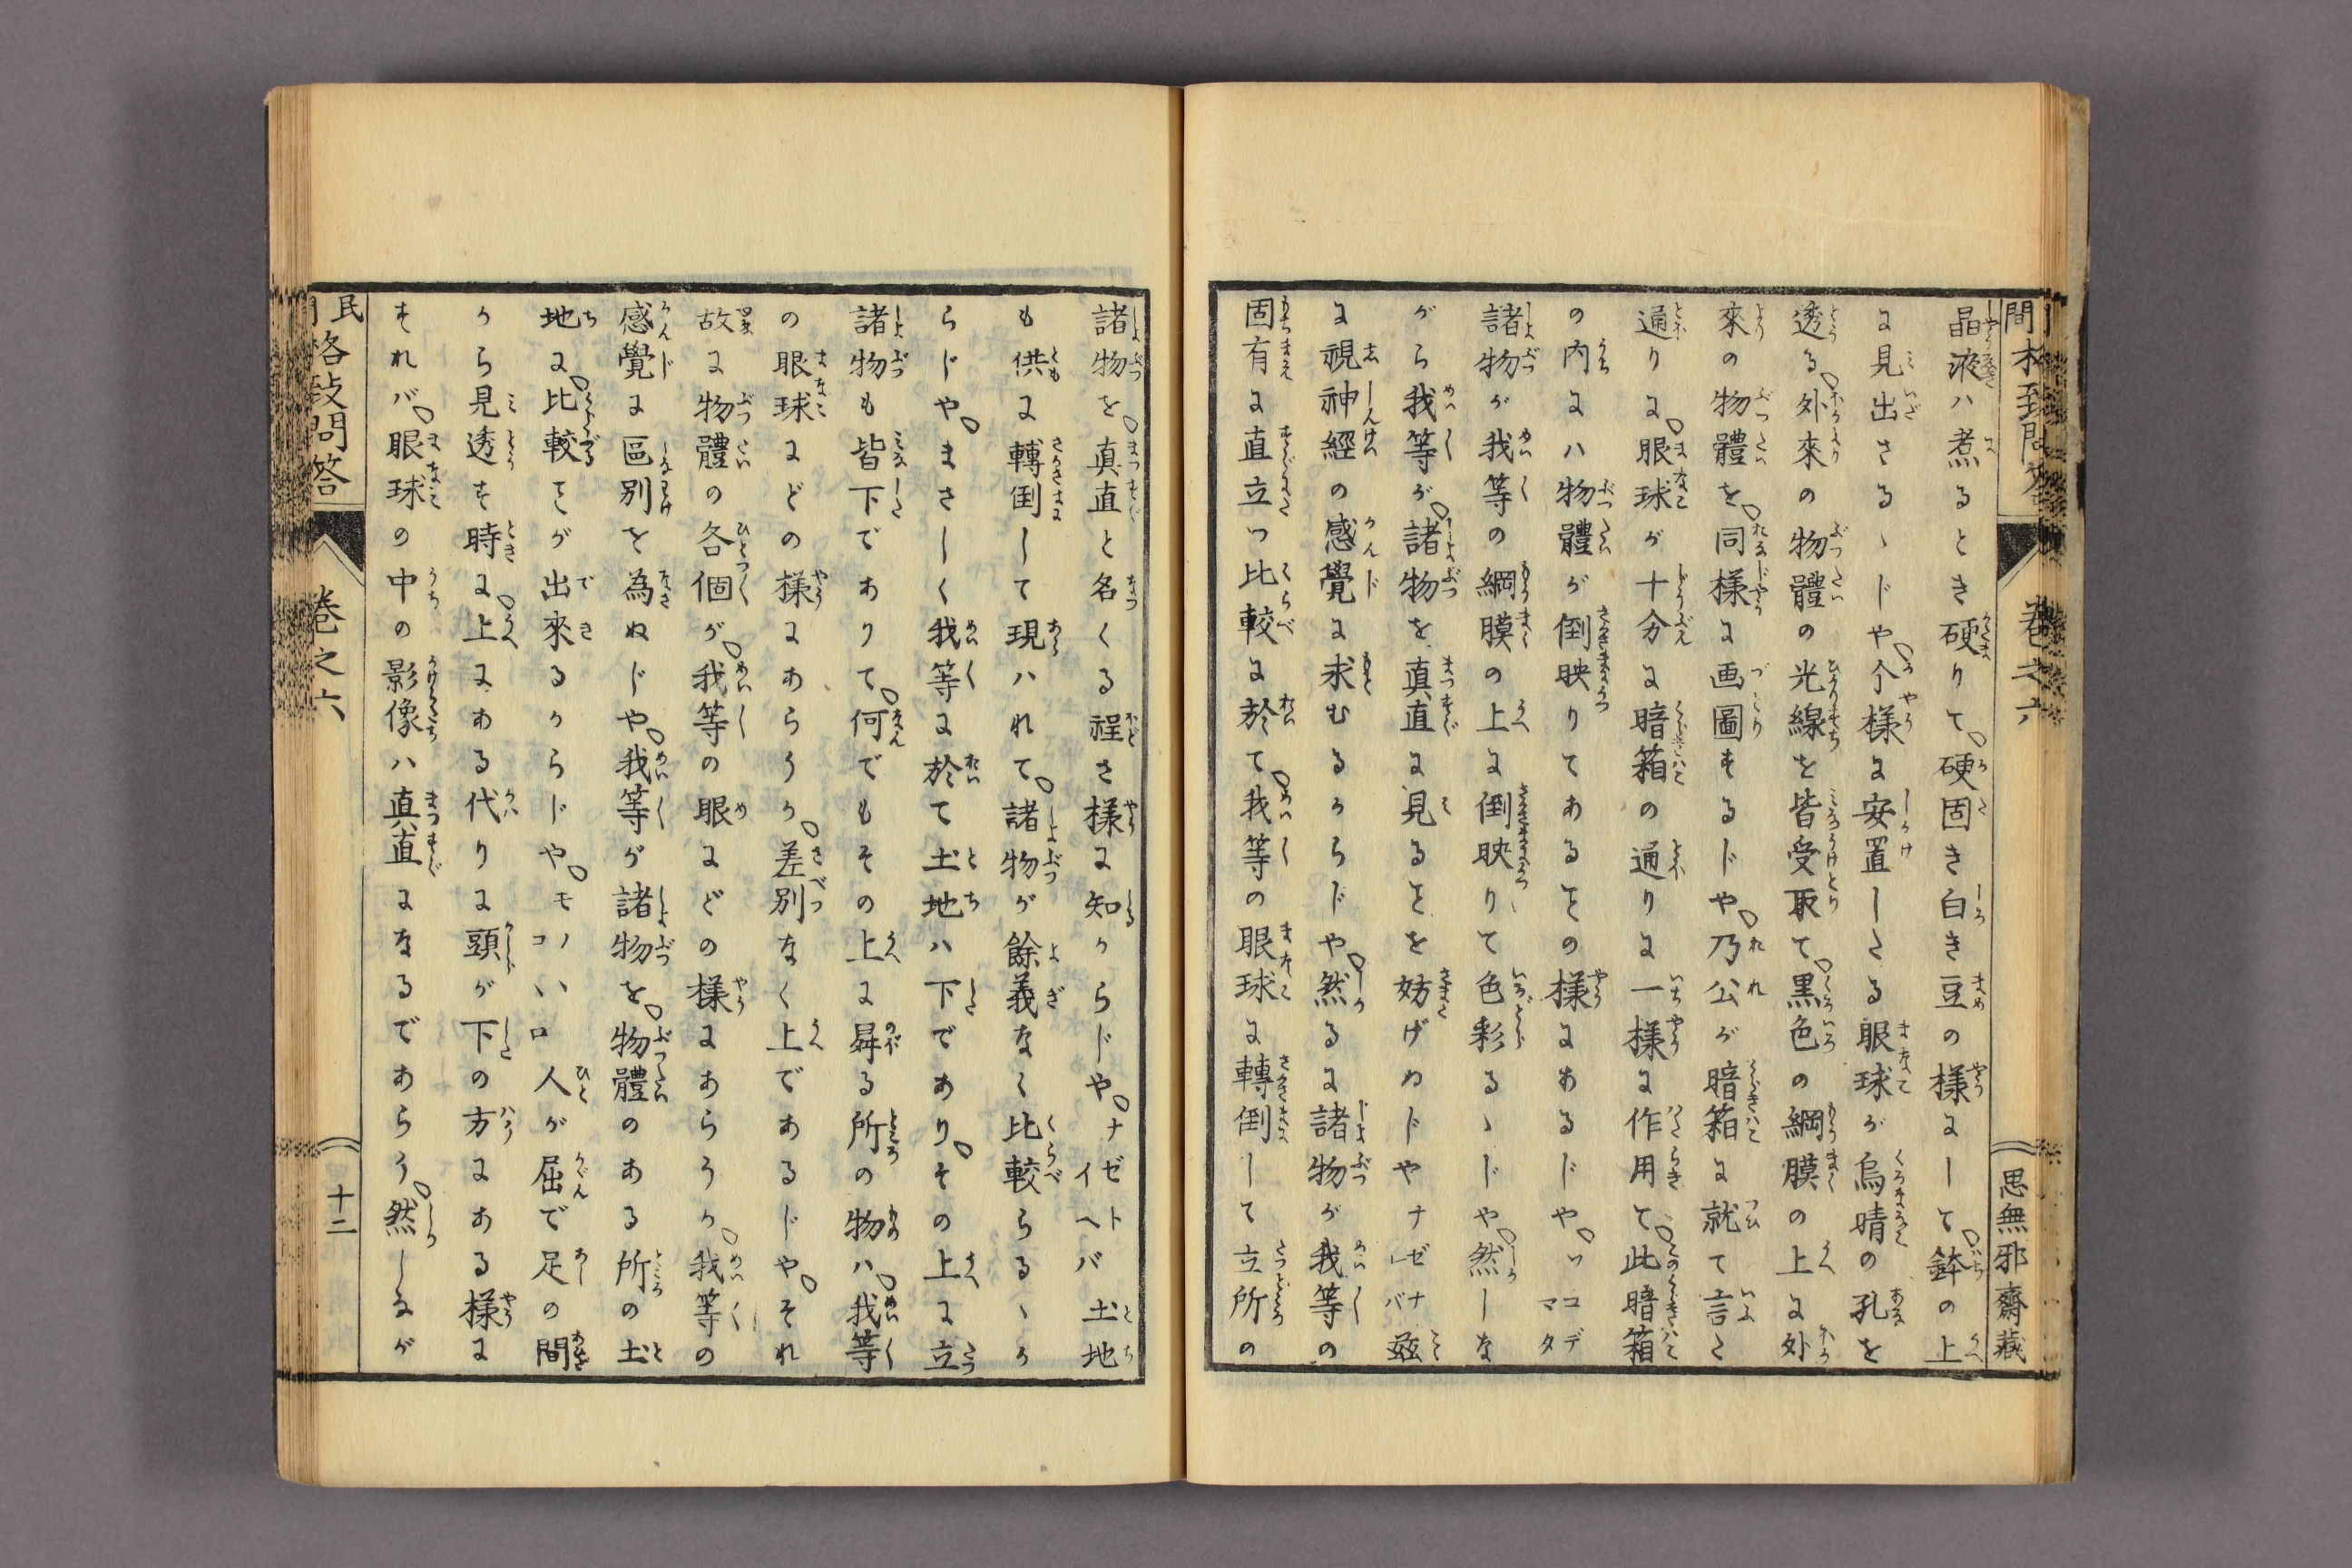 晶液ハ煮るとき硬りて硬固き白き豆の様にして鉢の上
に見出さるゝじや个様に安置したる眼球が烏睛の孔を
透る外來の物體の光線を皆受取て黒色の網膜の上に外
來の物體を同様に画圖するじや乃公が暗箱に就て言た
通りに眼球が十分に暗箱の通りに一様に作用て此暗箱
の内にハ物體が倒映りてあるその様にあるじや
諸物が我等の網膜の上に倒映りて色彩るゝじや然しな
がら我等が諸物を真直に見るとを妨げぬじやナゼナ
に視神經の感覺に求むるからじや然るに諸物が我等の
固有に直立つ比較に於て我等の眼球に轉倒して立所の
思無邪齋藏
諸物を真直と名くる程さ様に知からじやナゼトイヘバ土地
も供に轉倒して現ハれて諸物が餘義なく比較らるゝか
らじやまさしく我等に於て土地ハ下でありその上に立
諸物も皆下でありて何でもその上に昇る所の物ハ我等
の眼球にどの様にあらうか差別なく上であるじやそれ
故に物體の各個が我等の眼にどの様にあらうか我等の
感覺に區別を為ぬじや我等が諸物を物體のある所の土
地に比較そが出來るからじや人が屈で足の間
から見透す時に上にある代りに頭が下の方にある様に
それバ眼球の中の影像ハ真直になるであらう然しるが
民
格致問答
巻之六
十二